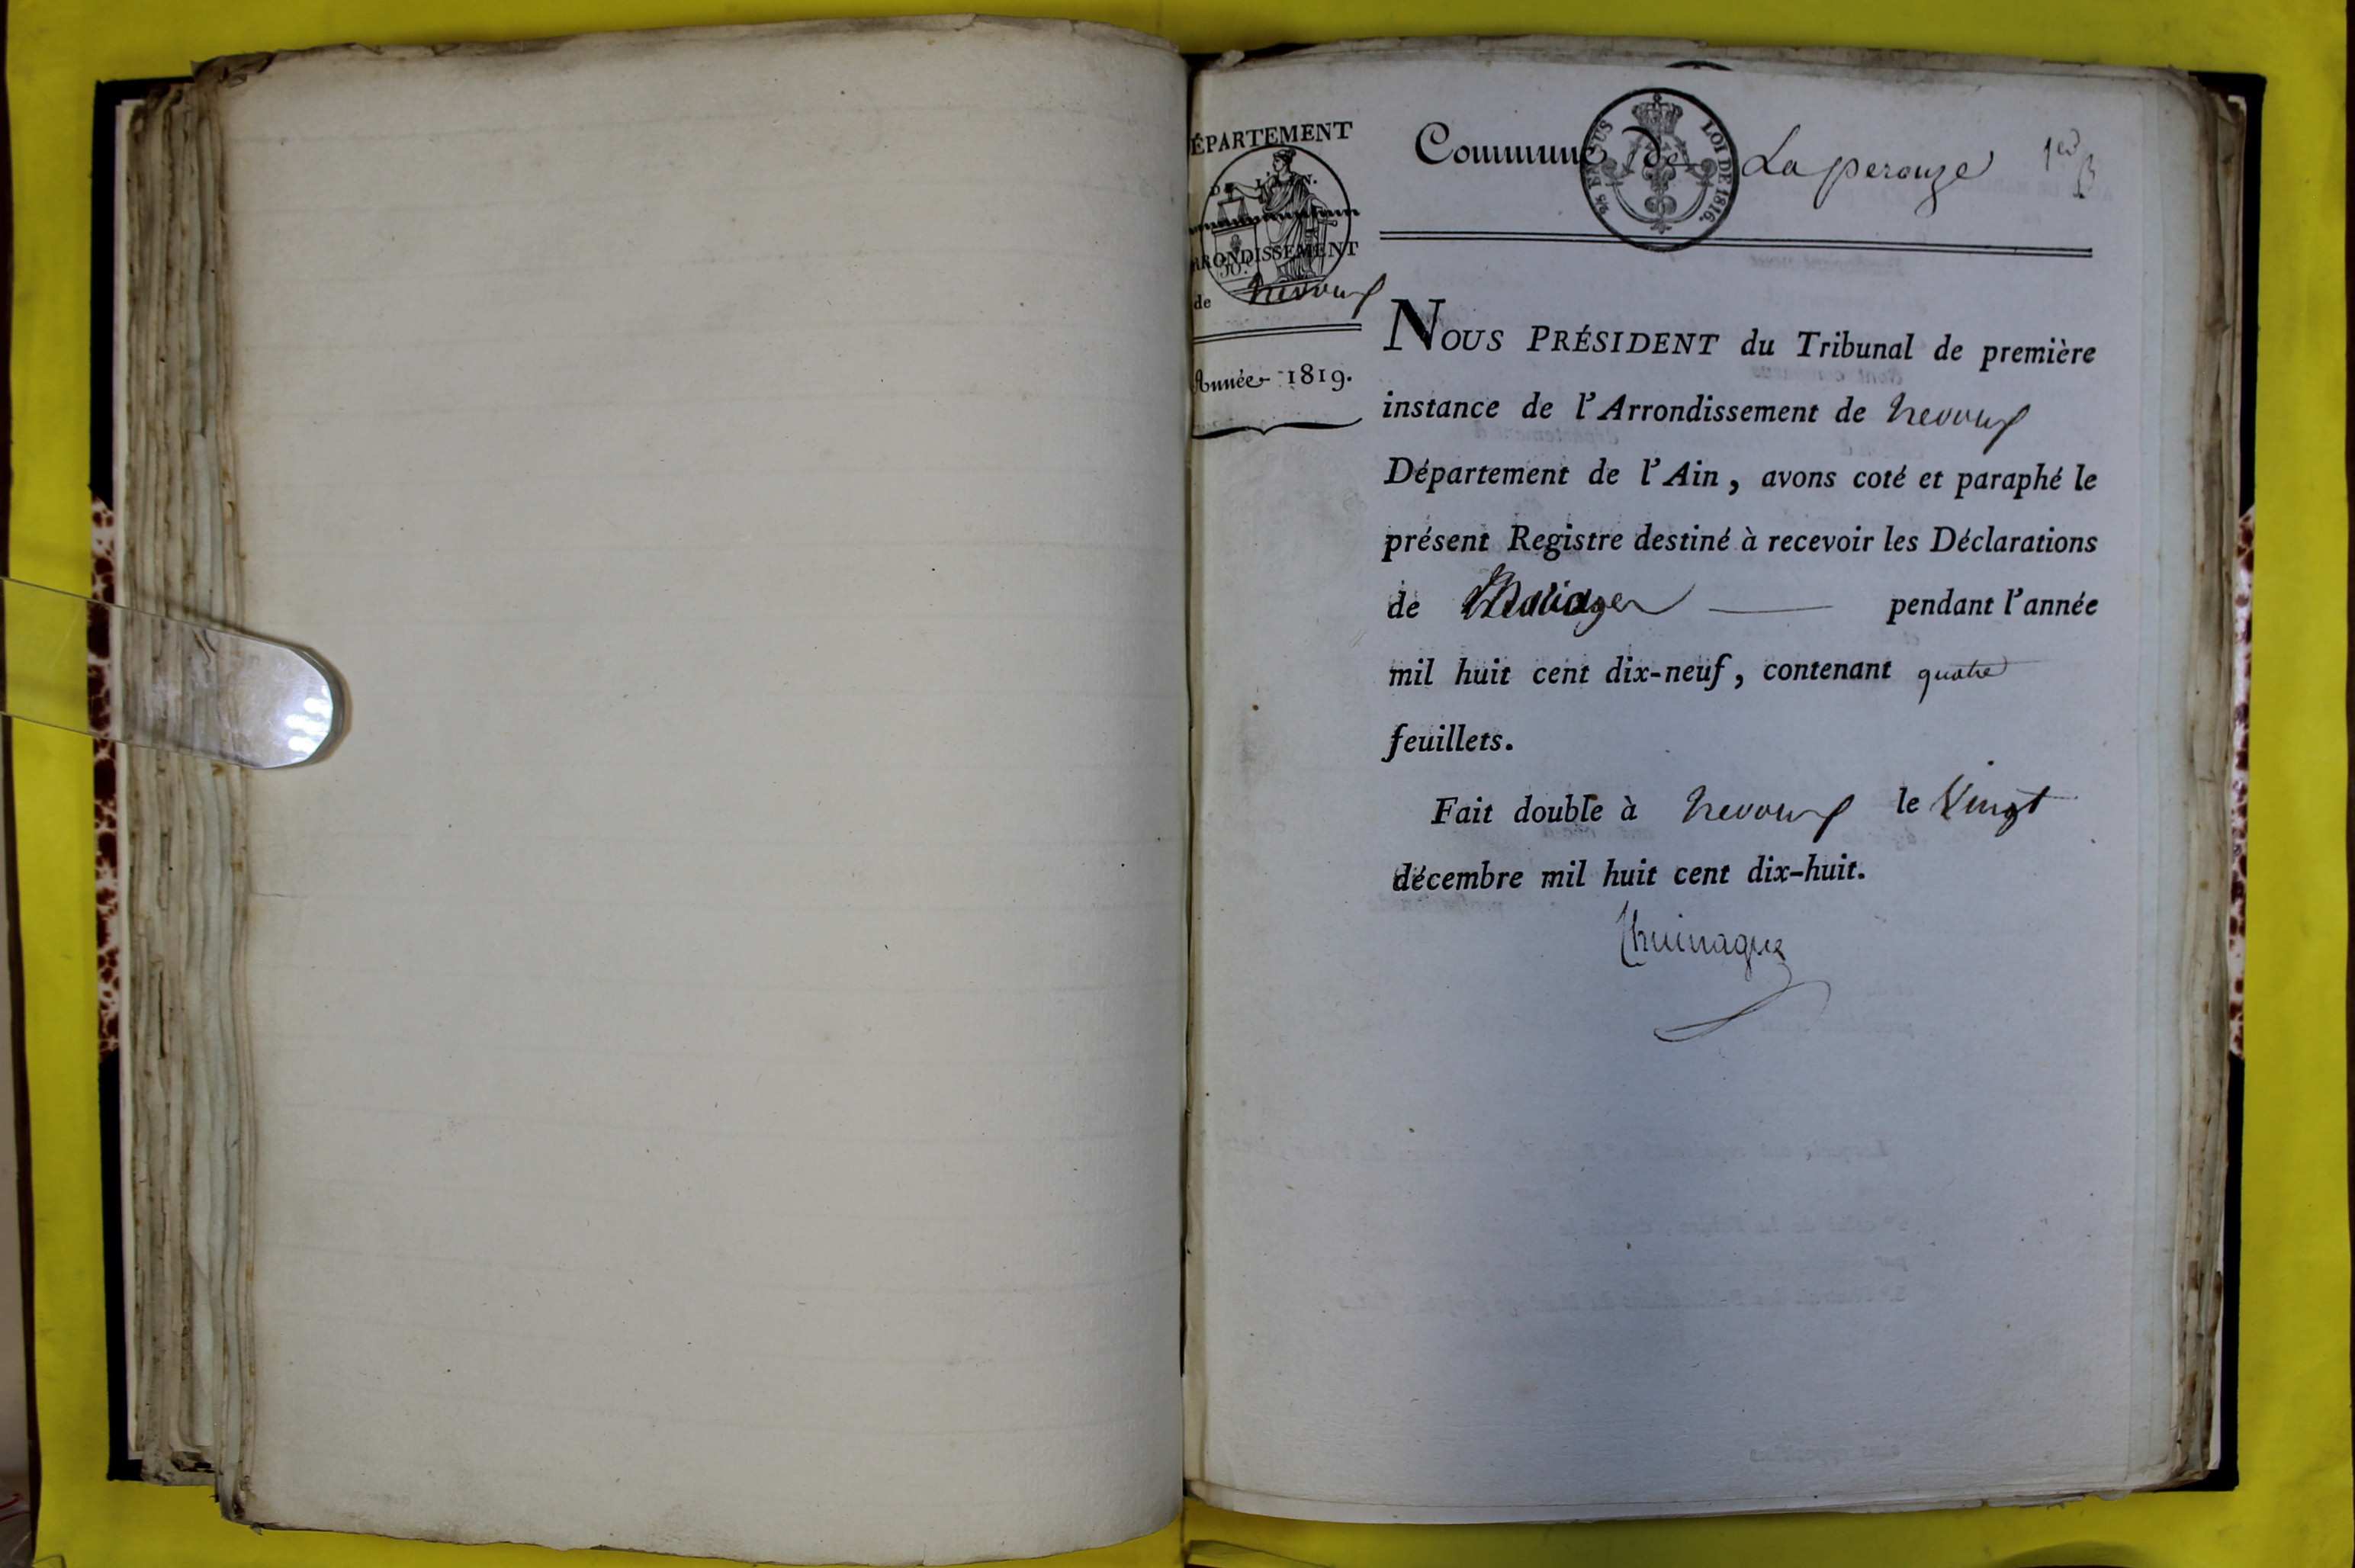 DÉPARTEMENT
DE L'AIN.
ARRONDISSEMENT
de Trevoux
Année 1819.
EN SUS LOI DE 1816.
Commune de Laperouze 1er
NOUS PRÉSIDENT du Tribunal de première
instance de l'Arrondissement de Trevoux
Département de l'Ain, avons coté et paraphé le
présent Registre destiné à recevoir les Déclarations
de Mariages pendant l'année
mil huit cent dix-neuf, contenant quatre
feuillets.
Fait double à Trevoux le Vingt
décembre mil huit cent dix-huit.